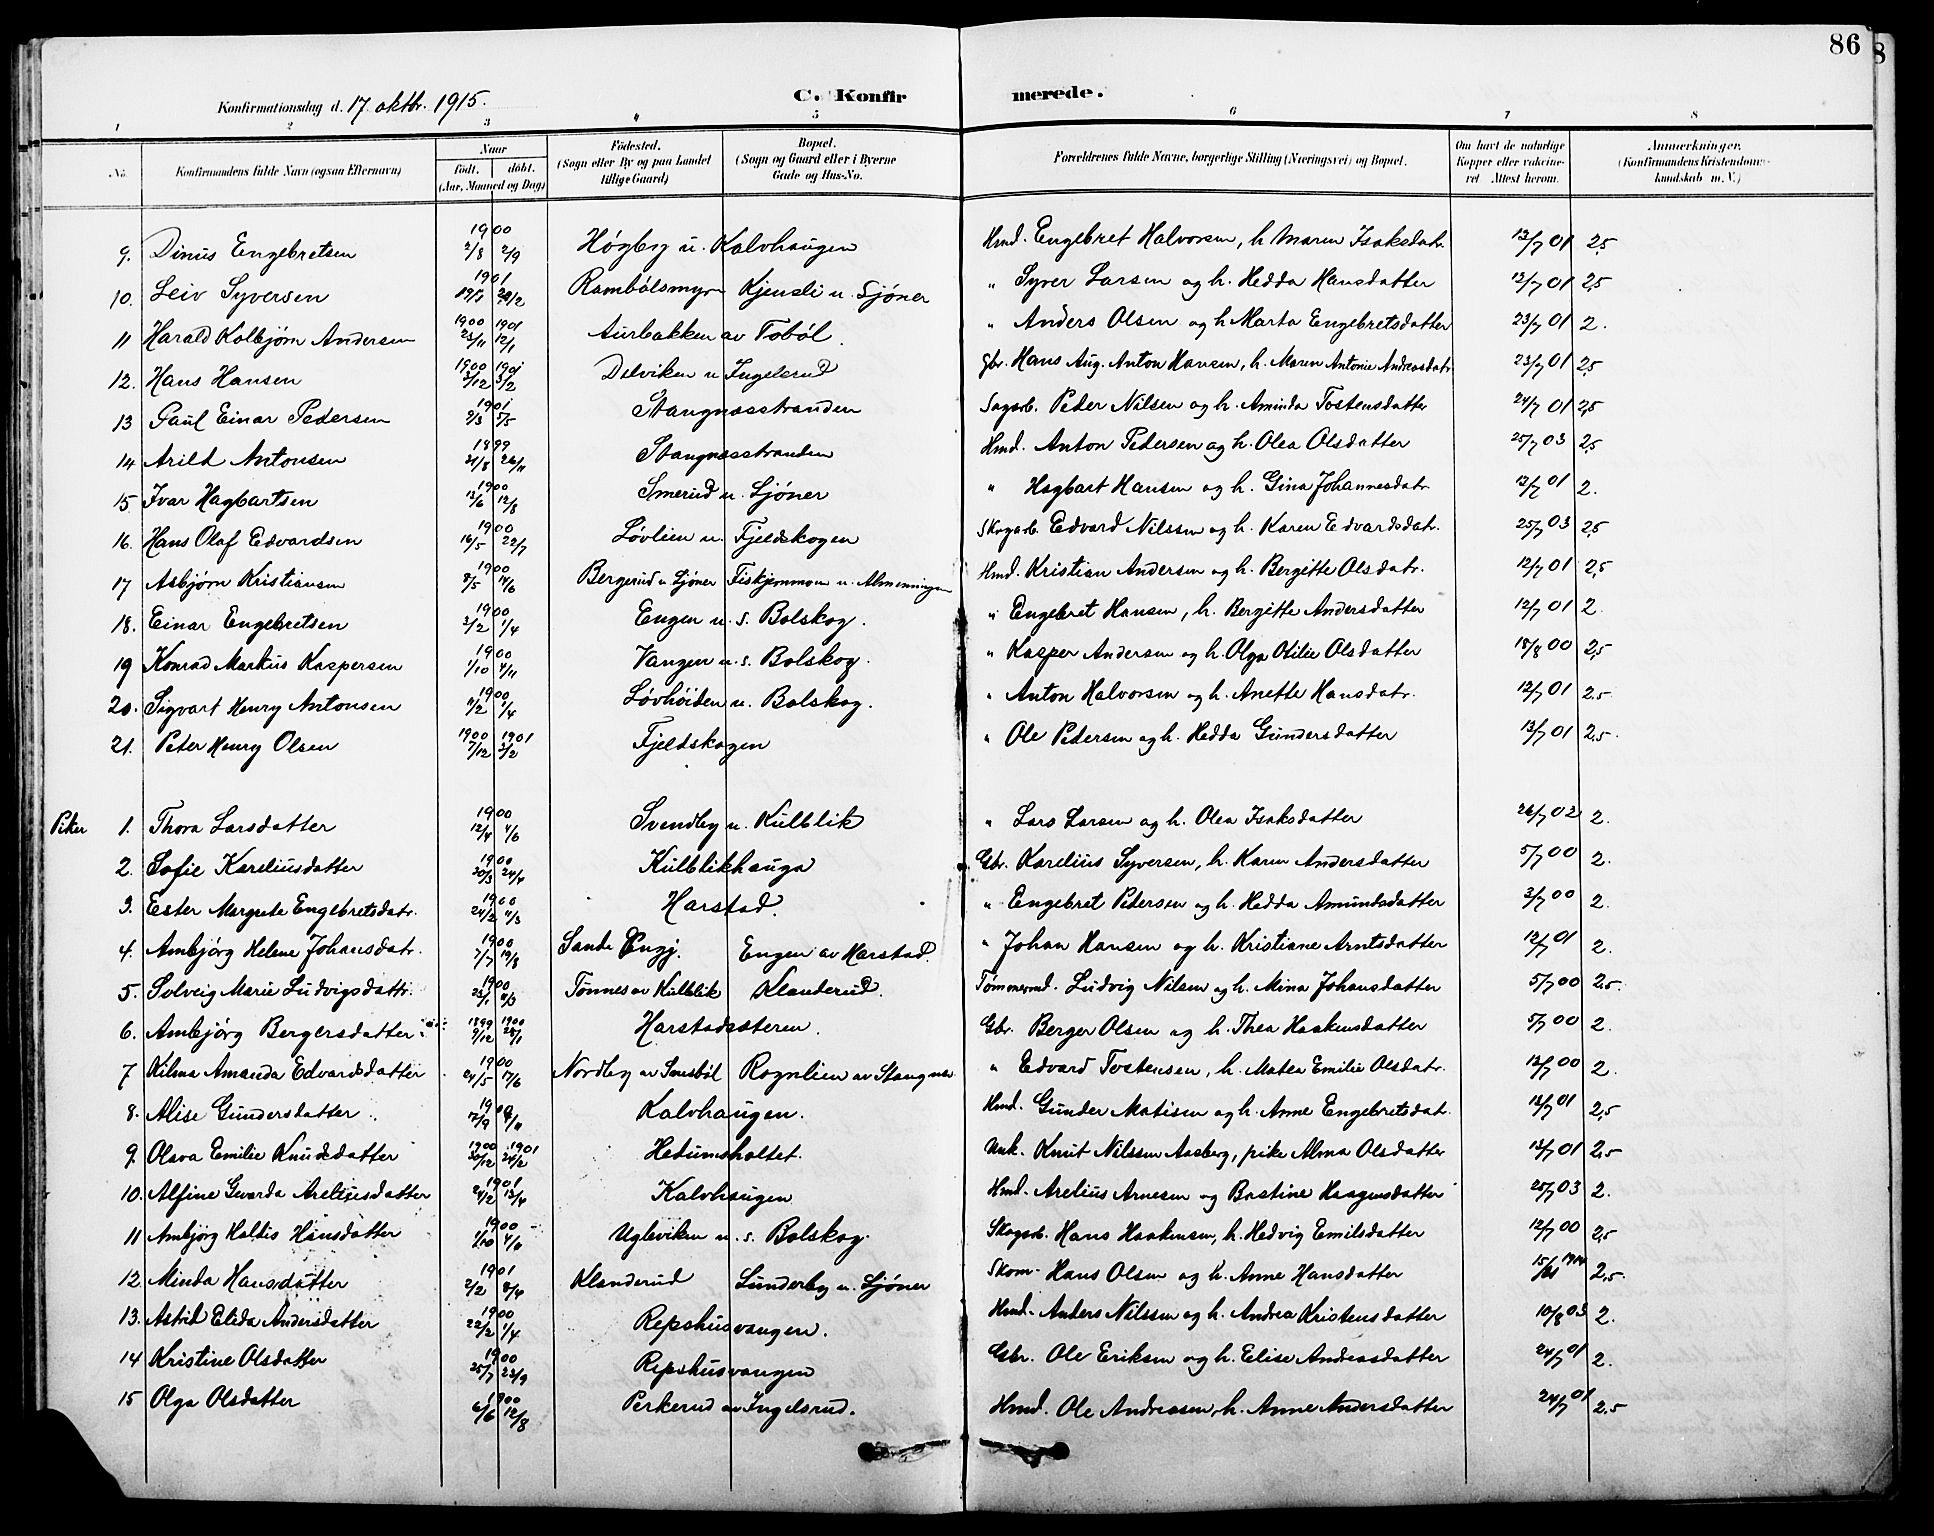 86
8
Konfirmationsdag d. 17. oktbr. 1915. C. Konfirmerede.
1 2 3 4 5 6 7 8
No. Konfirmandens fulde Navn (ogsaa Efternavn) Naar født. døbt. (Aar, Maaned og Dag) Fødested. (Sogn eller By og paa Landet tillige Gaard) Bopæl. (Sogn og Gaard eller i Byerne Gade og Hus-No. Forældrenes fulde Navne, borgerlige Stilling (Næringsvei) og Bopæl. Om havt de naturlige Kopper eller vaccineret. Attest herom. Anmerkninger. (Konfirmandens Kristendomskundskab m. V.)
9. Dinus Engebretsen 1900 2/8 2/9 Høgby u. Kalvhaugen Hmd. Engebret Halvorsen, h. Maren Isaksdatr. 13/7 01 2,5
10. Leiv Syversen 1901 Rambölsmyr Kjensli u. Sjöner " Syver Larsen og h. Hedda Hansdatter 12/7 01 2,5
11 Harald Kolbjørn Andersen 1900 23/11 1901 12/1 Aurbakken av Toböl. " Anders Olsen og h. Marta Engebretsdatter 23/7 01 2.
12. Hans Hansen 1900 3/12 1901 3/2 Delviken u Ingelsrud Gbr. Hans Aug. Anton Hansen, h. Maren Antonie Andreasdatr. 23/7 01 2,5
13 Paul Einar Pedersen 1901 2/3 5/5 Stangnæsstranden Sagarb. Peder Nilsen og h. Aminda Tostensdatter 24/7 01 2,5
14 Arild Antonsen 1899 21/8 26/11 Stangnæsstranden Hmd. Anton Pedersen og h. Olea Olsdatter 25/7 03 2,5
15 Ivar Hagbartsen 1900 13/6 12/8 Smerud u. Sjöner " Hagbart Hansen og h. Gina Johannesdatr. 13/7 01 2.
16. Hans Olaf Edvardsen 1900 16/5 22/7 Løvlien u. Fjeldskogen Skogarb. Edvard Nilssen og h. Karen Edvardsdatr. 25/7 03 2,5
17 Asbjørn Kristiansen 1900 8/5 4/6 Bergerud u Sjöner Fiskjernmoen u. Almenningen Hmd. Kristian Andersen og h. Bergitte Olsdatr. 12/7 01 2,5
18. Einar Engebretsen 1900 3/2 1/4 Engen u. s. Bolskog. " Engebret Hansen, h. Bergitte Andersdatter 12/7 01 2
19 Konrad Markus Kaspersen 1900 1/10 4/11 Vangen u. s. Bolskog. " Kasper Andersen og h. Olga Otilie Olsdatter 18/8 00 2,5
20. Sigvart Henry Antonsen 1900 1/4 Løvhöiden u. Bolskog. " Anton Halvorsen og h. Anette Hansdatr. 12/7 01 2.5
21. Peter Henry Olsen 1900 7/12 1901 3/2 Fjeldskogen " Ole Pedersen og h. Hedda Gundersdatter 13/7 01 2,5.
Piker 1. Thora Larsdatter 1900 12/4 4/6 Svendby u. Kulblik " Lars Larsen og h. Olea Isaksdatter 26/7 02 2.
2. Sofie Kareliusdatter 1900 20/3 24/4 Kulblikhauga Gbr. Karelius Syversen, h. Karen Andersdatter 5/7 00 2.
3. Ester Margrete Engebretsdatr. 1900 24/2 4/3 Harstad. " Engebret Pedersen og h. Hedda Amundsdatter 3/7 00 2.
4. Ambjörg Helene Johansdatr. 1900 7/7 19/8 Sande Engj. Engen av Harstad. " Johan Hansen og h. Kristiane Arntsdatter 12/7 01 2.
5. Solveig Marie Ludvigsdattr. 1900 Tønnes av Kulblik Klanderud. Tømmermd. Ludvig Nilsen og h. Mina Johansdatter 5/7 00 2,5.
6. Ambjörg Bergersdatter 1899 9/12 1900 28/1 Harstadsæteren. Gbr. Berger Olsen og h. Thea Haakensdatter 5/7 00 2.
7 Hilma Amanda Edvardsdatter 1900 24/5 17/6 Nordby av Sousböl Rognlien av Stangnes " Edvard Tostensen, h. Matea Emilie Olsdatr. 12/7 00 2.
8. Alise Gundersdatter. 1900 Kalvhaugen. Hmd. Gunder Matisen og h. Anne Engebretsdatr. 13/7 01 2,5
9. Olava Emilie Knudsdatter 1900 30/12 1901 24/2 Hedumsholtet. Unk. Knut Nilssen Aasberg, pike Alma Olsdatter 13/7 01 2,5
10. Alfine Gvarda Areliusdatter 1901 24/2 13/4 Kalvhaugen Hmd. Arelius Arnesen og Bastine Haagensdatter 25/7 03 2.
11 Ambjörg Haldis Hansdatter 1900 Ugleviken u. s. Bolskog. Skogarb. Hans Haakensen, h. Hedvig Emilsdatter 12/7 00 2,5
12. Minda Hansdatter 1901 2/2 8/4 Klanderud Lunderby u. Sjöner Skom- Hans Olsen og h. Anne Hansdatter 1914 2,5.
13. Astrid Elida Andersdatter 1900 22/2 1/4 Repshusvangen. Hmd. Anders Nilssen og h. Andrea Kristensdatter 10/8 03 2.
14 Kristine Olsdatter 1900 25/7 23/9 Repshusvangen Gbr. Ole Eriksen og h. Elise Andreasdatter 24/7 01 2.
15 Olga Olsdatter 1900 6/6 12/8 Perkerud av Ingelsrud. Hmd. Ole Andreasen, h. Anne Andersdatter 24/7 01 2.5